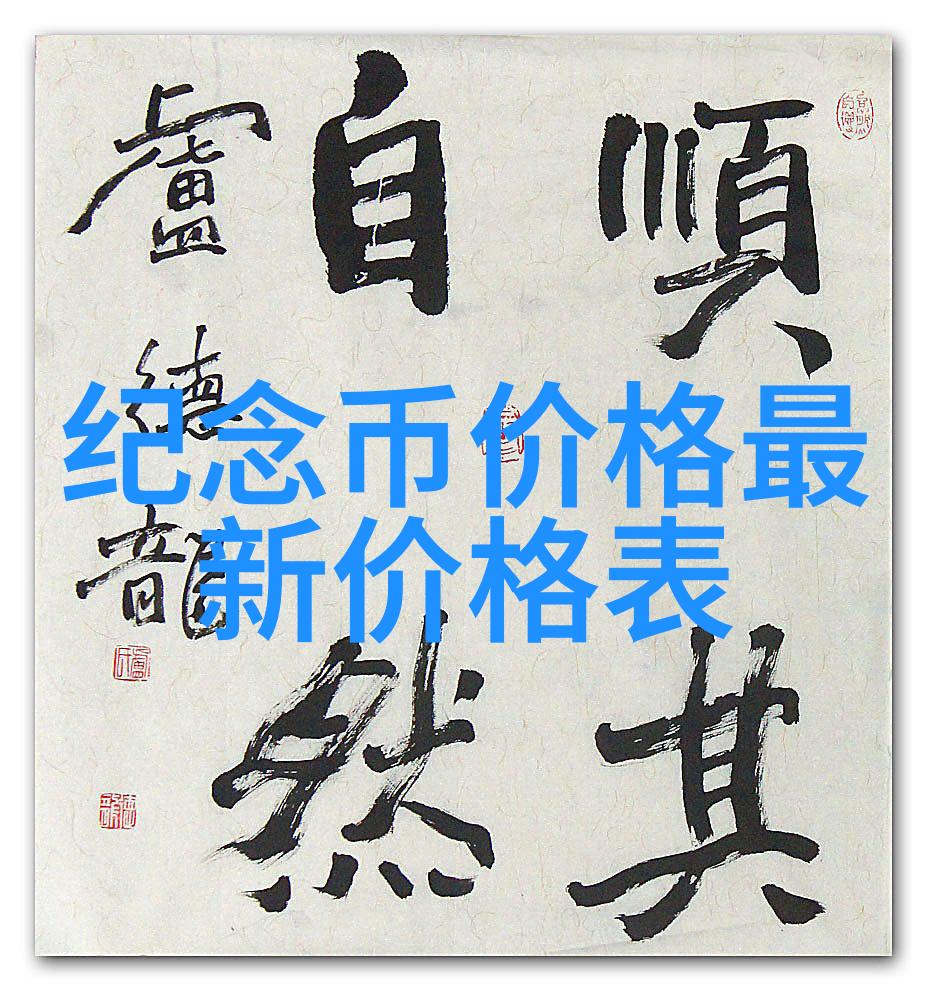 順其
自然
盧德龍
纪念币价格最
新价格表